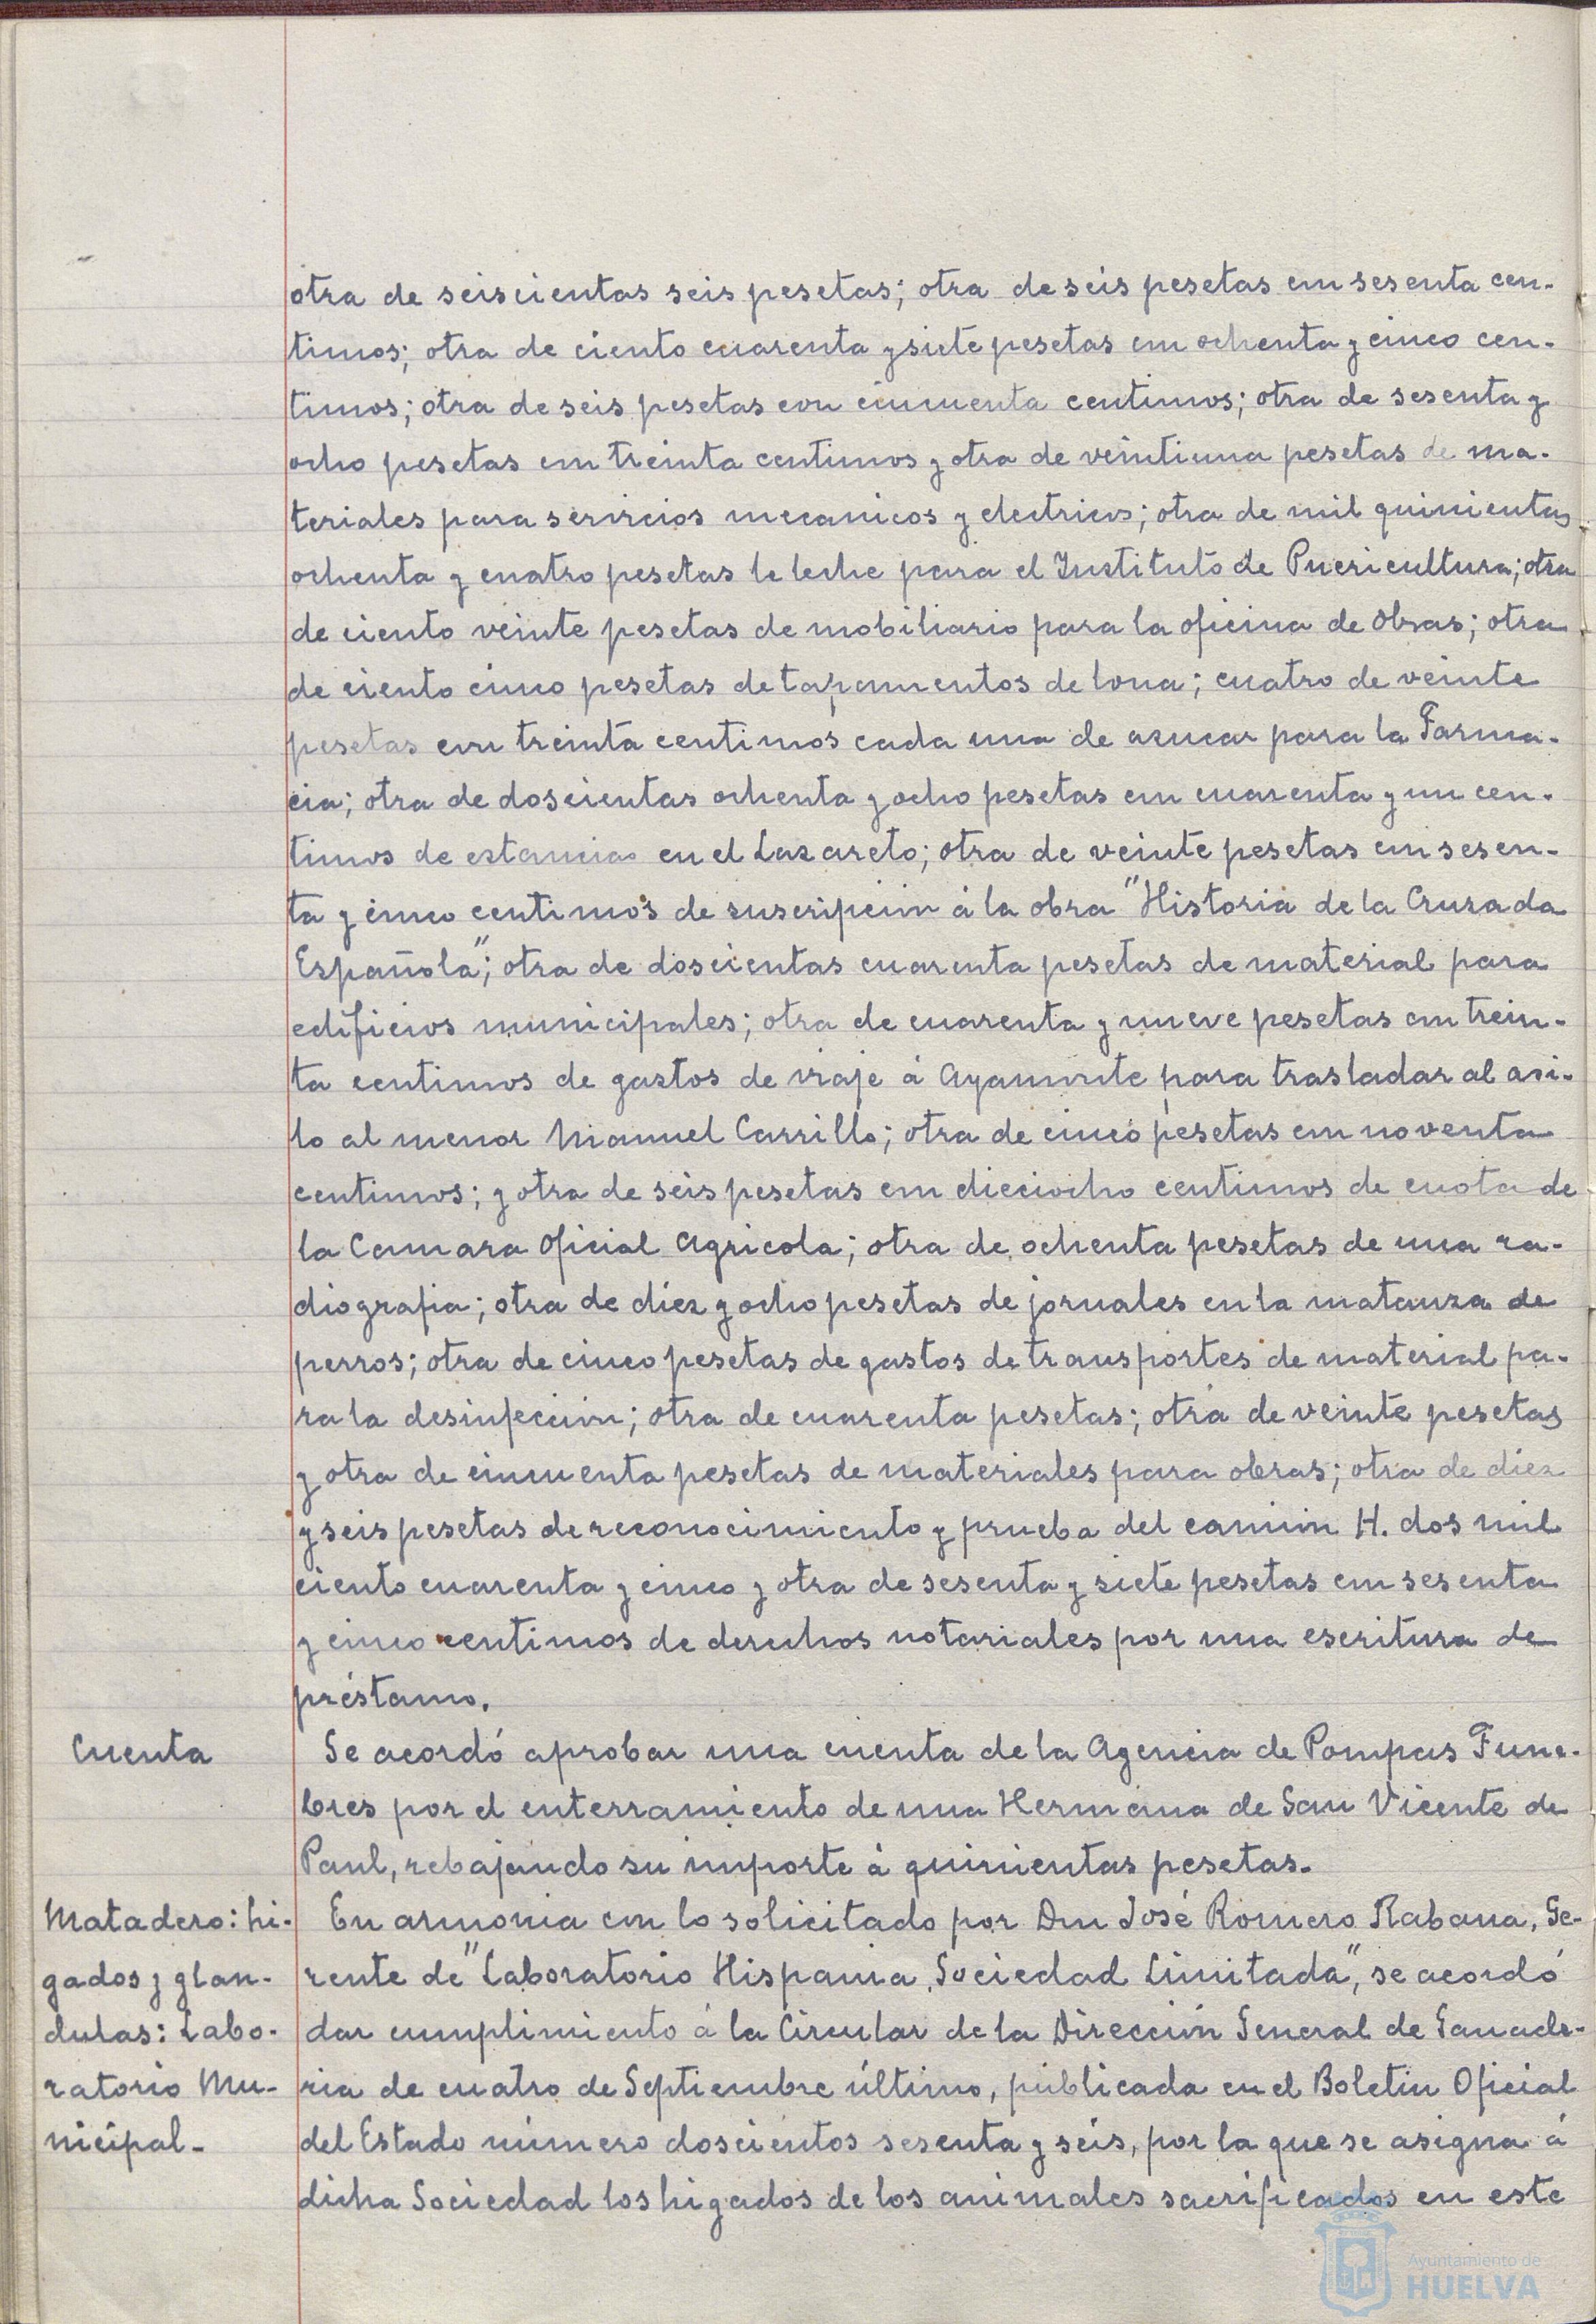 otra de seiscientas seis pesetas; otra de seis pesetas con sesenta cen-
timos; otra de ciento cuarenta y siete pesetas con ochenta y cinco cen-
timos; otra de seis pesetas con cincuenta centimos; otra de sesenta y
ocho pesetas con treinta centimos y otra de veintiuna pesetas de ma-
teriales para servicios mecanicos y electricos; otra de mil quinientas
ochenta y cuatro pesetas de leche para el Instituto de Puericultura; otra
de ciento veinte pesetas de mobiliario para la oficina de Obras; otra
de ciento cinco pesetas de tapamentos de lona; cuatro de veinte
pesetas con treinta centimos cada una de azucar para la Farma-
cia; otra de doscientas ochenta y ocho pesetas con cuarenta y un cen-
timos de estancias en el Lazareto; otra de veinte pesetas con sesen-
ta y cinco centimos de suscripción á la obra "Historia de la Cruzada
Española"; otra de doscientas cuarenta pesetas de material para
edificios municipales; otra de cuarenta y nueve pesetas con trein-
ta centimos de gastos de viaje á Ayamonte para trasladar al asi-
lo al menor Manuel Carrillo; otra de cinco pesetas con noventa
centimos; y otra de seis pesetas con dieciocho centimos de cuota de
la Camara Oficial Agricola; otra de ochenta pesetas de una ra-
diografia; otra de diez y ocho pesetas de jornales en la matanza de
perros; otra de cinco pesetas de gastos de transportes de material pa-
ra la desinfección; otra de cuarenta pesetas; otra de veinte pesetas
y otra de cincuenta pesetas de materiales para obras; otra de diez
y seis pesetas de reconocimiento y prueba del camión H. dos mil
ciento cuarenta y cinco y otra de sesenta y siete pesetas con sesenta
y cinco centimos de derechos notariales por una escritura de
préstamo.
Cuenta
Se acordó aprobar una cuenta de la Agencia de Pompas Fune-
bres por el enterramiento de una Hermana de San Vicente de
Paul, rebajando su importe á quinientas pesetas.
Matadero: hi-
gados y glan-
dulas: Labo-
ratorio Mu-
nicipal-
En armonia con lo solicitado por Don José Romero Rabana, Ge-
rente de "Laboratorio Hispania, Sociedad Limitada", se acordó
dar cumplimiento á la Circular de la Dirección General de Ganade-
ria de cuatro de Septiembre último, publicada en el Boletin Oficial
del Estado número doscientos sesenta y seis, por la que se asigna á
dicha Sociedad los higados de los animales sacrificados en este
Ayuntamiento de
HUELVA